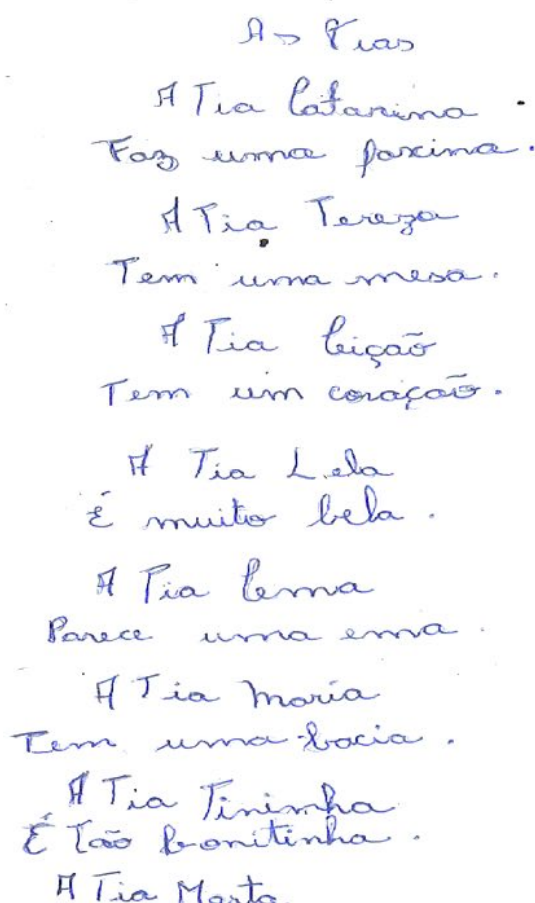 As Tias
A Tia Catarina
Faz uma faxina.
A Tia Tereza
Tem uma mesa.
A Tia Ceição
Tem um coração.
A Tia Lela
É muito bela.
A Tia Cema
Parece uma ema.
A Tia Maria
Tem uma bacia.
A Tia Tininha
É tão bonitinha.
A Tia Marta